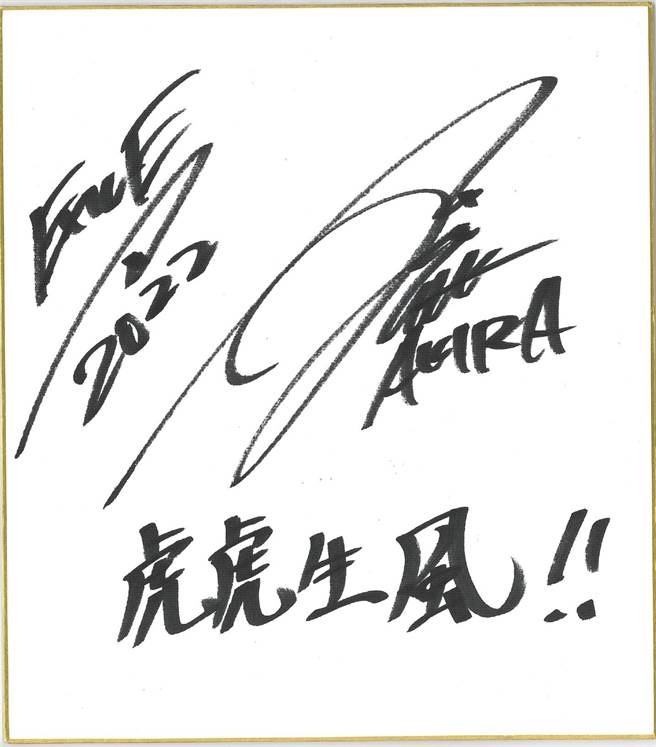 EXILE
2022
AKIRA
虎虎生風!!